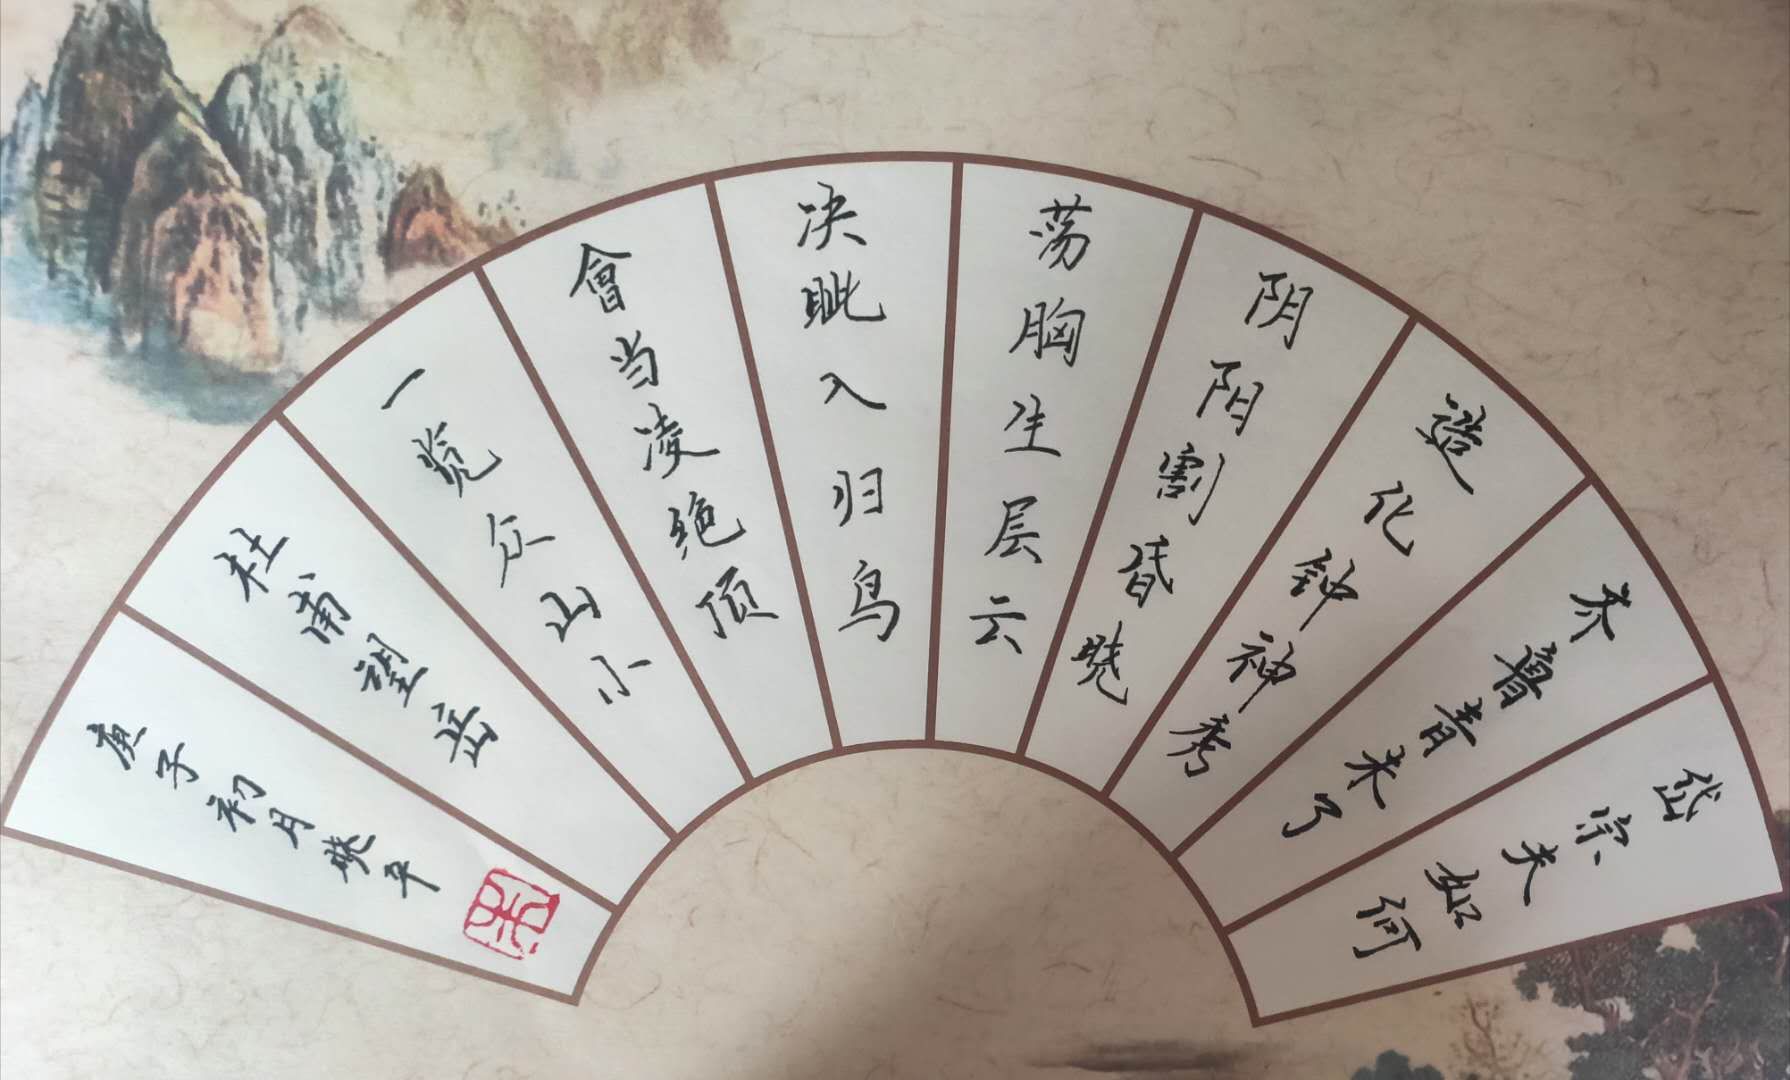 岱宗夫如何
齐鲁青未了
造化钟神秀
阴阳割昏晓
荡胸生层云
决眦入归鸟
會当凌绝顶
一览众山小
杜甫望岳
庚子初月